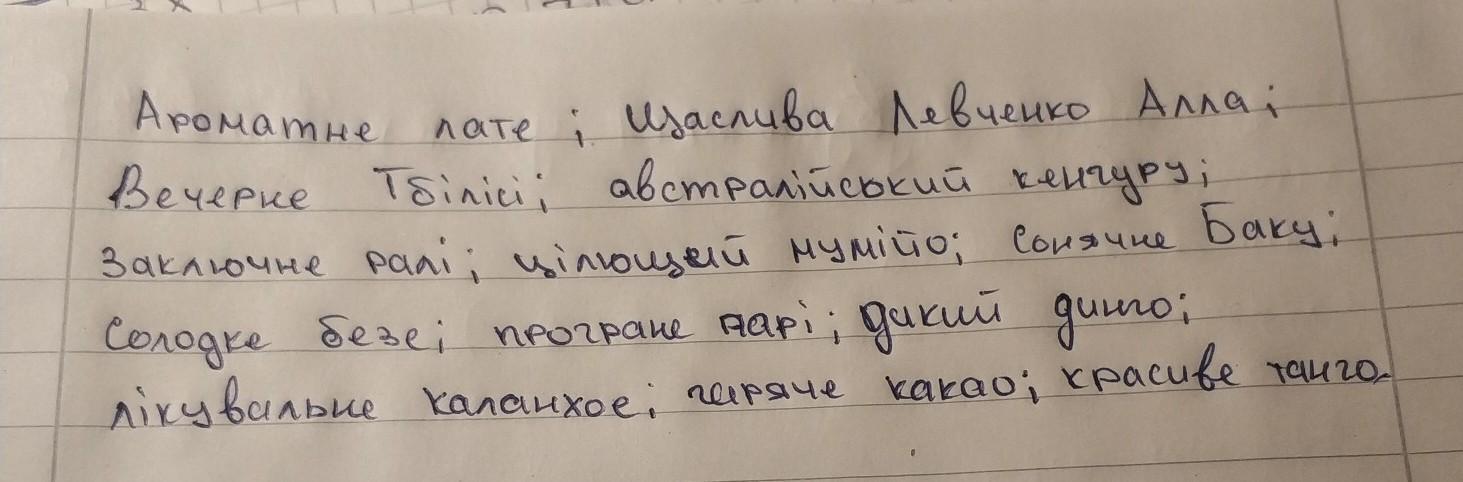 Ароматне лате; Щаслива Левченко Алла;
Вечерне Тбілісі; австралійський кенгуру;
Заключне ралі; цілющий мумійо; Сонячне Баку;
Солодке безе; програне парі; дикий динго;
лікувальне каланхое; гаряче какао; красиве танго.